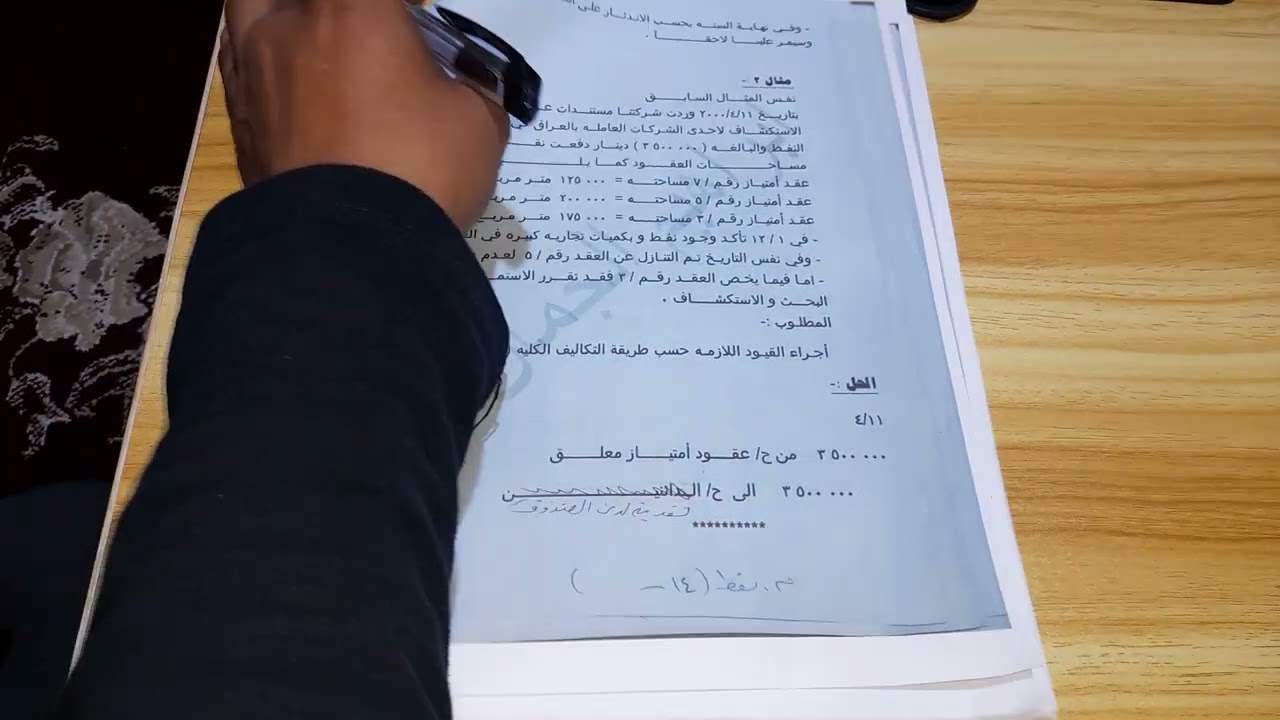 - وفي نهاية السنه يحسب الاندثار على
وسيمر علينا لاحقا .
مثال ٢ -
نفس المثال السابق
بتاريخ ٢٠٠٠/٤/١١ وردت شركتنا مستندات
الاستكشاف لاحدى الشركات العامله بالعراق
النفط والبالغه ( ٣٥٠٠٠٠٠ ) دينار دفعت
مساحات العقود كما
عقد أمتياز رقم / ٧ مساحته = ١٢٥٠٠٠ متر
عقد أمتياز رقم / ٥ مساحته = ٢٠٠٠٠٠ متر
عقد أمتياز رقم / ٣ مساحته = ١٧٥٠٠٠ متر
- في ١ / ١٢ تأكد وجود نفط و بكميات تجاريه كبيره في
- وفي نفس التاريخ تم التنازل عن العقد رقم / ٥ لعدم
- اما فيما يخص العقد رقم / ٣ فقد تقرر
البحث و الاستكشاف .
المطلوب :-
أجراء القيود اللازمه حسب طريقة التكاليف الكليه (
الحل :-
٤/١١
٣٥٠٠٠٠٠ من ح/ عقود أمتياز معلق
٣٥٠٠٠٠٠ الى ح/
نقدية لدى الصندوق
**********
م. نفط (١٤ - )